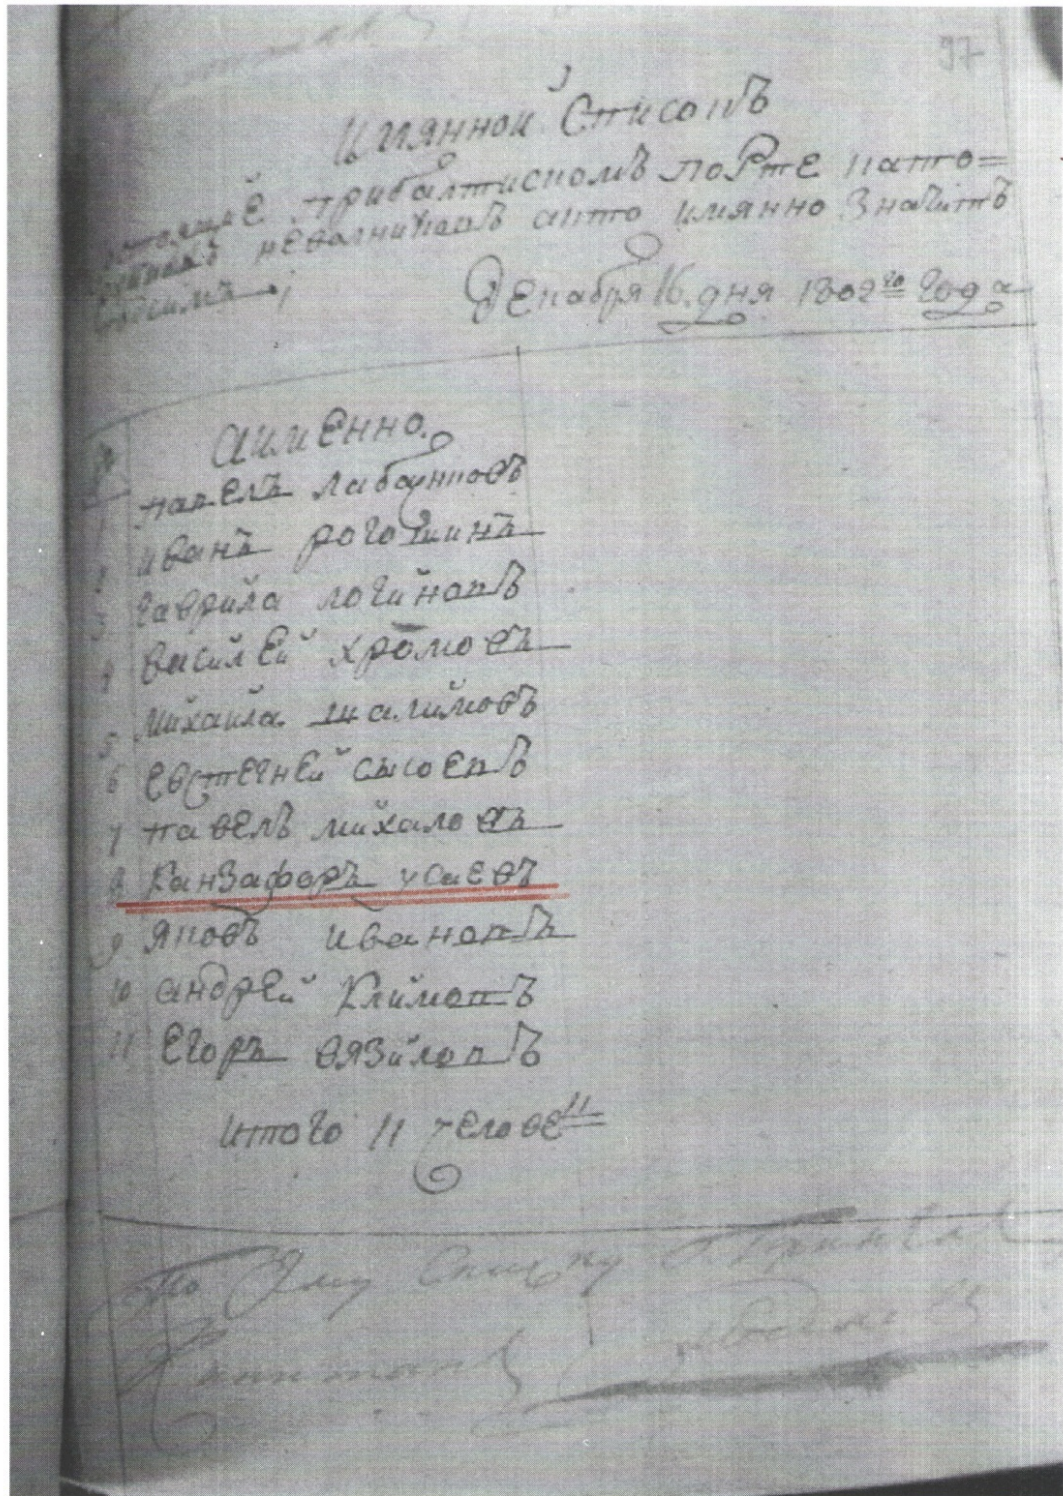 97
Имянной Списокъ
прибалтискомъ порте като=
невалникавъ акто имянно значитъ
Декабря 16. дня 1802го года
№ аимѣнно.
1 павелъ лабунковъ
2 иванъ рогошинъ
3 гаврила логиновъ
4 василей хромовъ
5 михаила шалимовъ
6 евстегней сысоевъ
7 павелъ михаловъ
8 Канзафоръ усаевъ
9 яковъ ивановъ
10 андрей Климовъ
11 Егоръ вязиловъ
итого 11 человекъ
По Сему Списку Принелъ